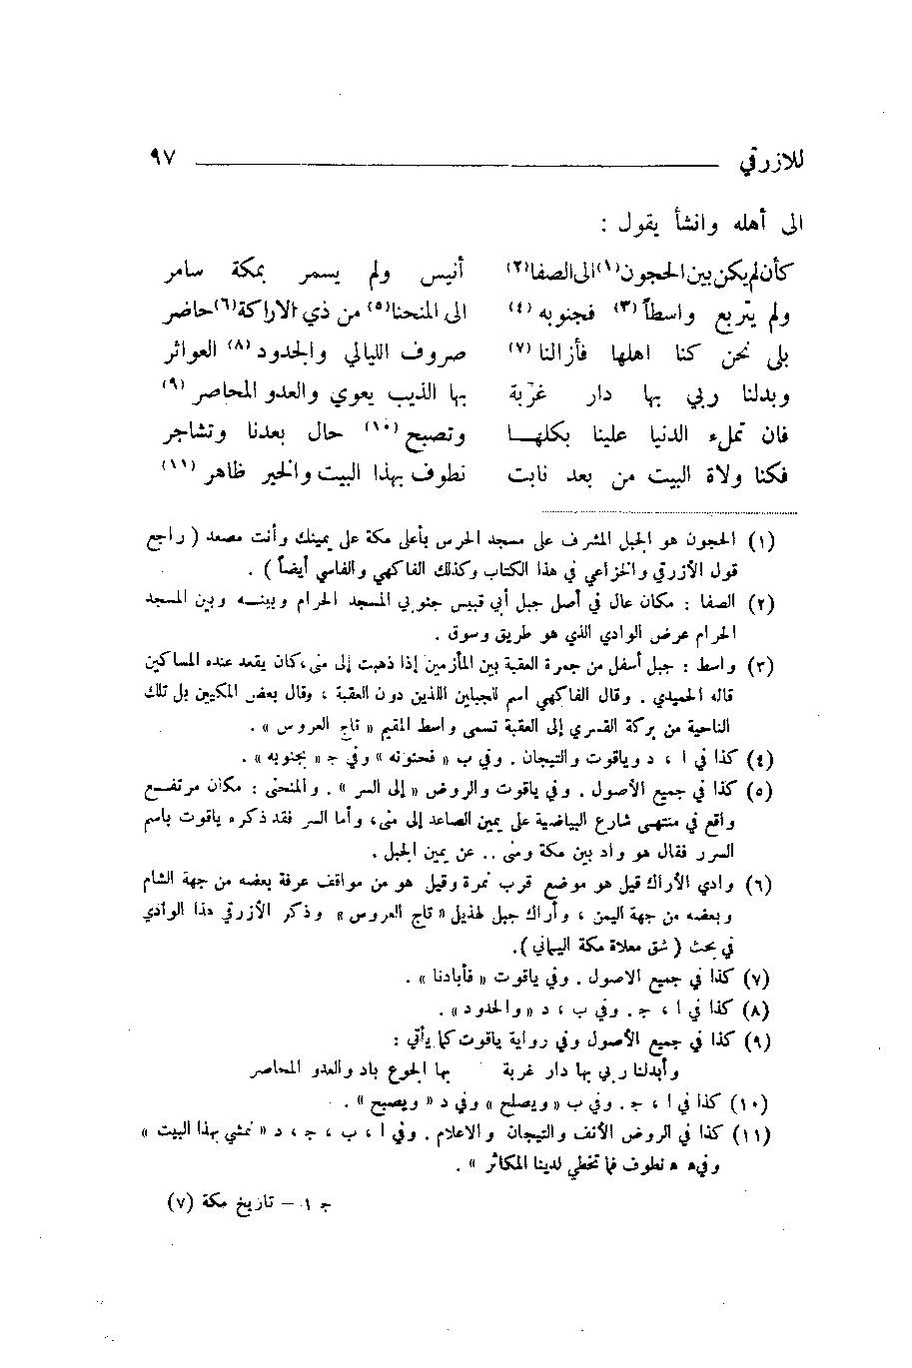 للازرقي ٩٧
الى أهله وانشأ يقول :
كأن لم يكن بين الحجون(١) الى الصفا(٢) أنيس ولم يسمر بمكة سامر
ولم يتربع واسطاً (٣) فجنوبه (٤) الى المنحنا(٥) من ذي الاراكة(٦) حاضر
بلى نحن كنا اهلها فأزالنا (٧) صروف الليالي والجدود (٨) العواثر
وبدلنا ربي بها دار غربة بها الذيب يعوي والعدو المحاصر (٩)
فان تملء الدنيا علينا بكلهـا وتصبح (١٠) حال بعدنا وتشاجر
فكنا ولاة البيت من بعد نابت نطوف بهذا البيت والخير ظاهر (١١)
(١) الحجون هو الجبل المشرف على مسجد الحرس بأعلى مكة على يمينك وأنت مصعد ( راجع
قول الأزرقي والخزاعي في هذا الكتاب وكذلك الفاكهي والفاسي أيضاً ) .
(٢) الصفا : مكان عال في أصل جبل أبي قبيس جنوبي المسجد الحرام وبينـه وبين المسجد
الحرام عرض الوادي الذي هو طريق وسوق .
(٣) واسط : جبل أسفل من جمرة العقبة بين المأزمين إذا ذهبت إلى منى ، كان يقعد عنده المساكين
قاله الحميدي . وقال الفاكهي اسم للجبلين اللذين دون العقبة ، وقال بعض المكيين بل تلك
الناحية من بركة القسري إلى العقبة تسمى واسط المقيم « تاج العروس » .
(٤) كذا في ا ، د وياقوت والتيجان . وفي ب « فحنونه » وفي ج « بجنوبه » .
(٥) كذا في جميع الأصول . وفي ياقوت والروض « إلى السر » . والمنحنى : مكان مرتفـع
واقع في منتهى شارع البياضية على يمين الصاعد إلى منى ، وأما السر فقد ذكره ياقوت باسم
السرر فقال هو واد بين مكة ومنى .. عن يمين الجبل .
(٦) وادي الأراك قيل هو موضع قرب نمرة وقيل هو من مواقف عرفة بعضه من جهة الشام
وبعضه من جهة اليمن ، وأراك جبل لهذيل « تاج العروس » وذكر الأزرقي هذا الوادي
في بحث ( شق معلاة مكة اليماني ) .
(٧) كذا في جميع الاصول . وفي ياقوت « فأبادنا » .
(٨) كذا في ا ، ج . وفي ب ، د « والحدود » .
(٩) كذا في جميع الأصول وفي رواية ياقوت كما يأتي :
وأبدلنا ربي بها دار غربة بها الجوع باد والعدو المحاصر
(١٠) كذا في ا ، ج . وفي ب « ويصلح » وفي د « ويصبح » .
(١١) كذا في الروض الأنف والتيجان والاعلام . وفي ا ، ب ، ج ، د « نمشي بهذا البيت »
وفي ه « نطوف فما تخطي لدينا المكاثر » .
ج ١ – تاريخ مكة (٧)